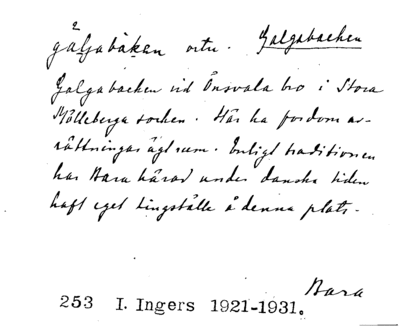 gäljabäken ortn. Galgabacken
Galgabacken vid Önsvala bro i Stora
Mölleberga socken. Här ha fordom av-
rättningar ägt rum. Enligt traditionen
har Bara härad under danska tiden
haft eget tingställe å denna plats.
Bara
253 I. Ingers 1921-1931.